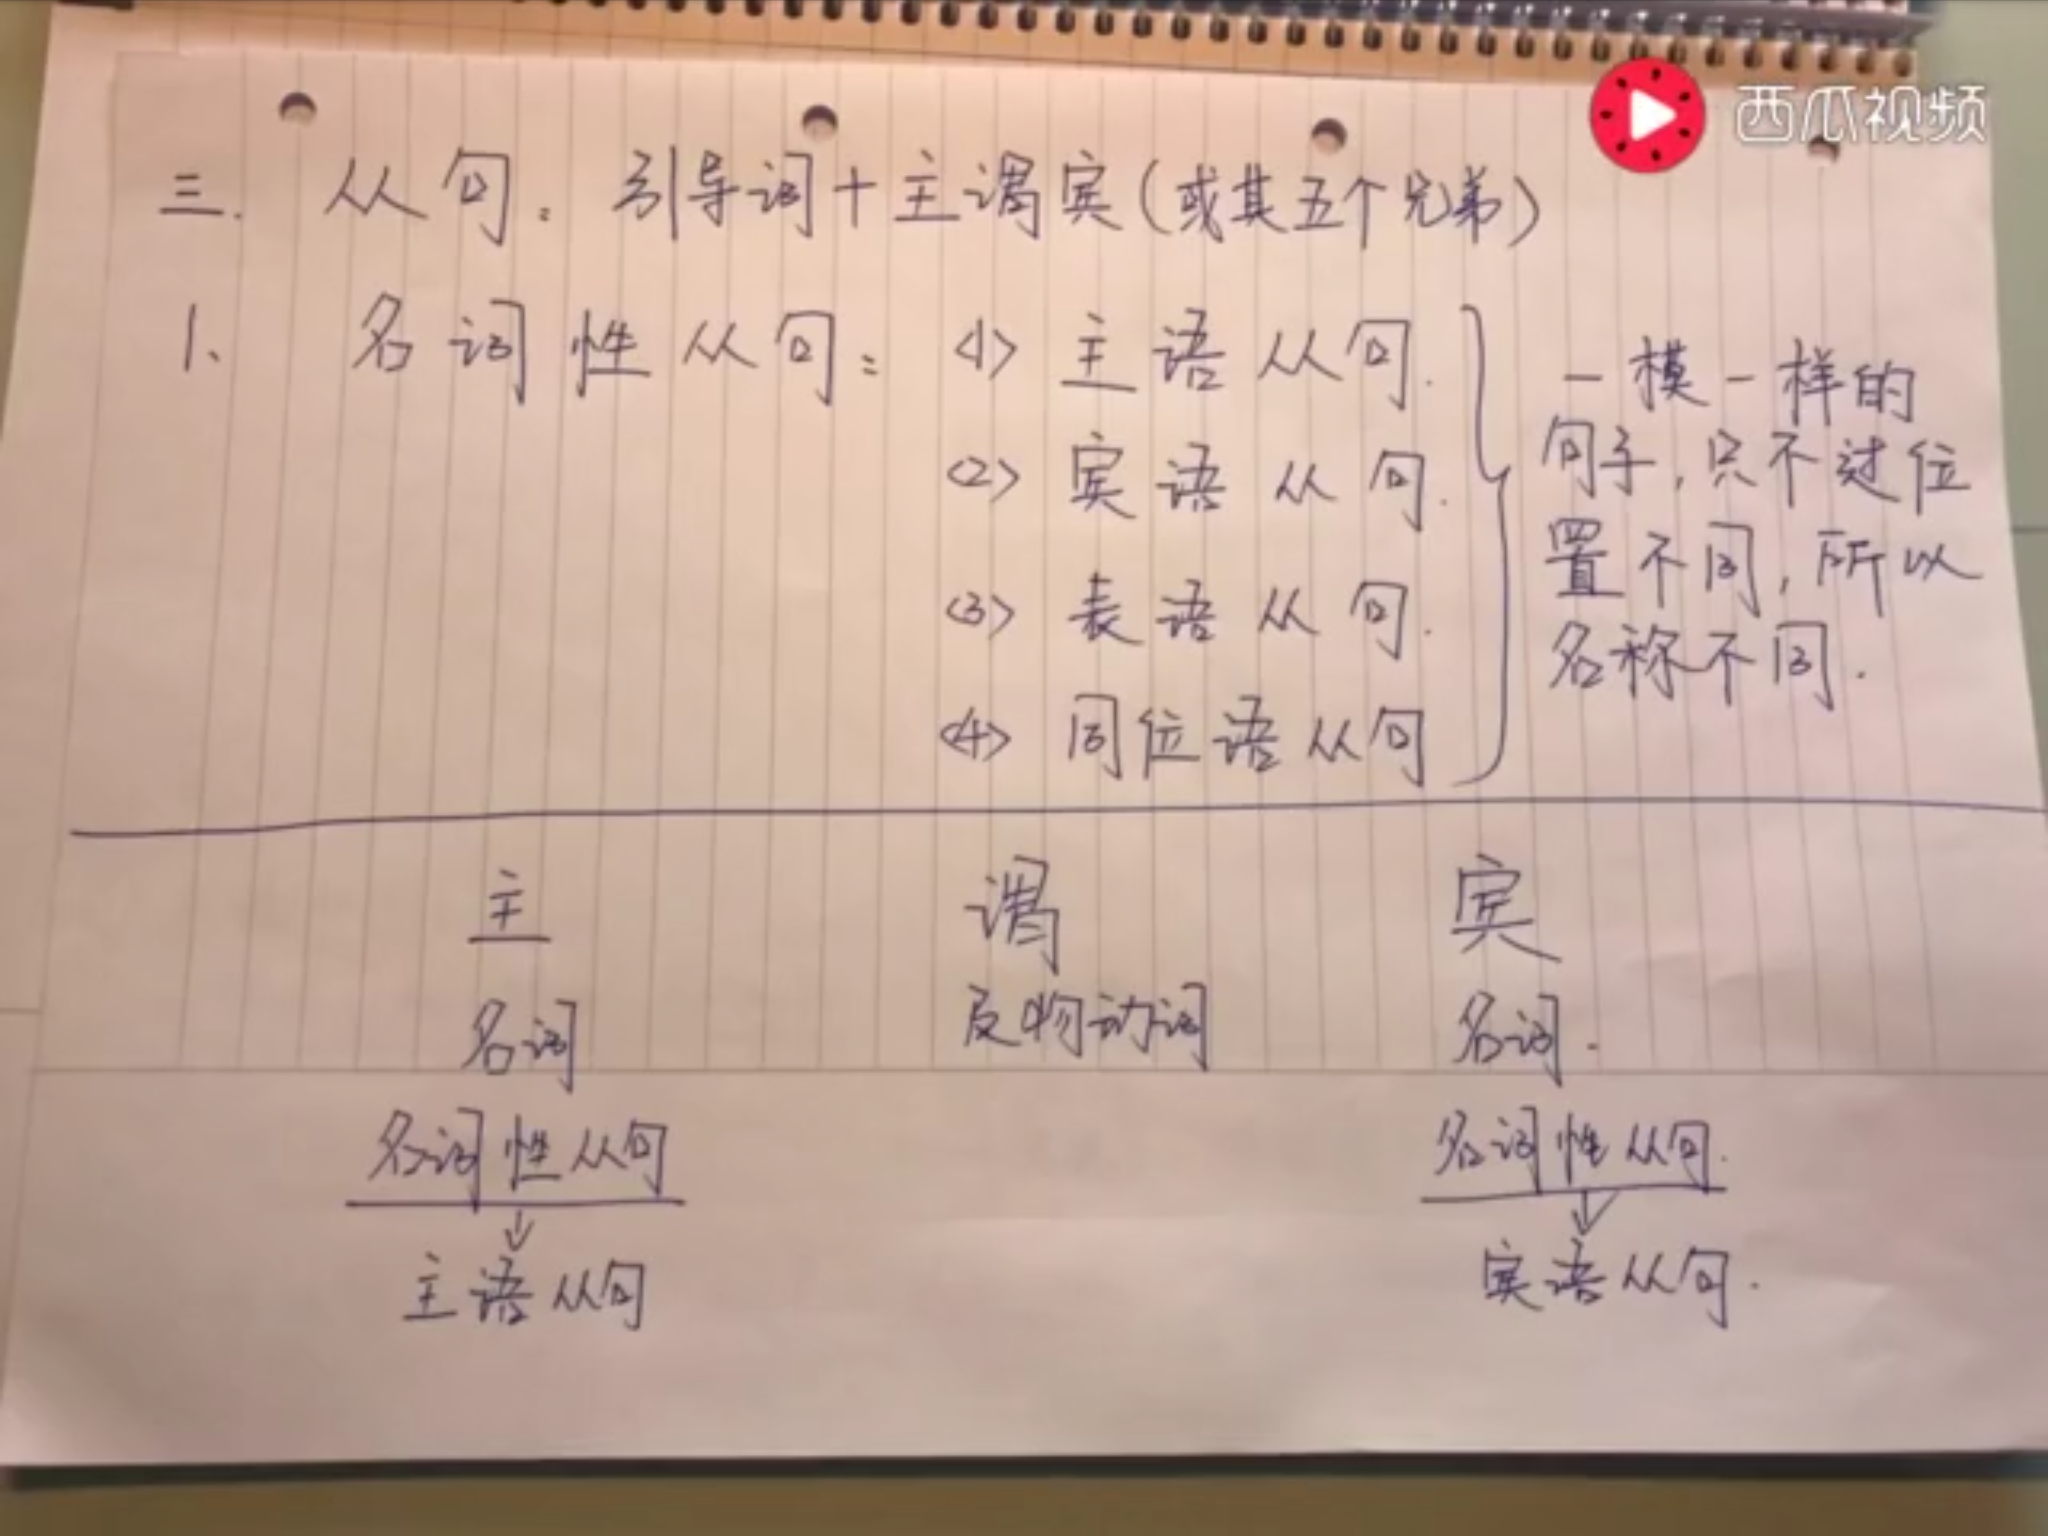 西瓜视频
三. 从句: 引导词+主谓宾(或其五个兄弟)
1、 名词性从句: <1> 主语从句.
<2> 宾语从句.
<3> 表语从句.
<4> 同位语从句
一模一样的
句子,只不过位
置不同,所以
名称不同.
主 谓 宾
名词 及物动词 名词.
名词性从句 名词性从句.
↓ ↓
主语从句 宾语从句.